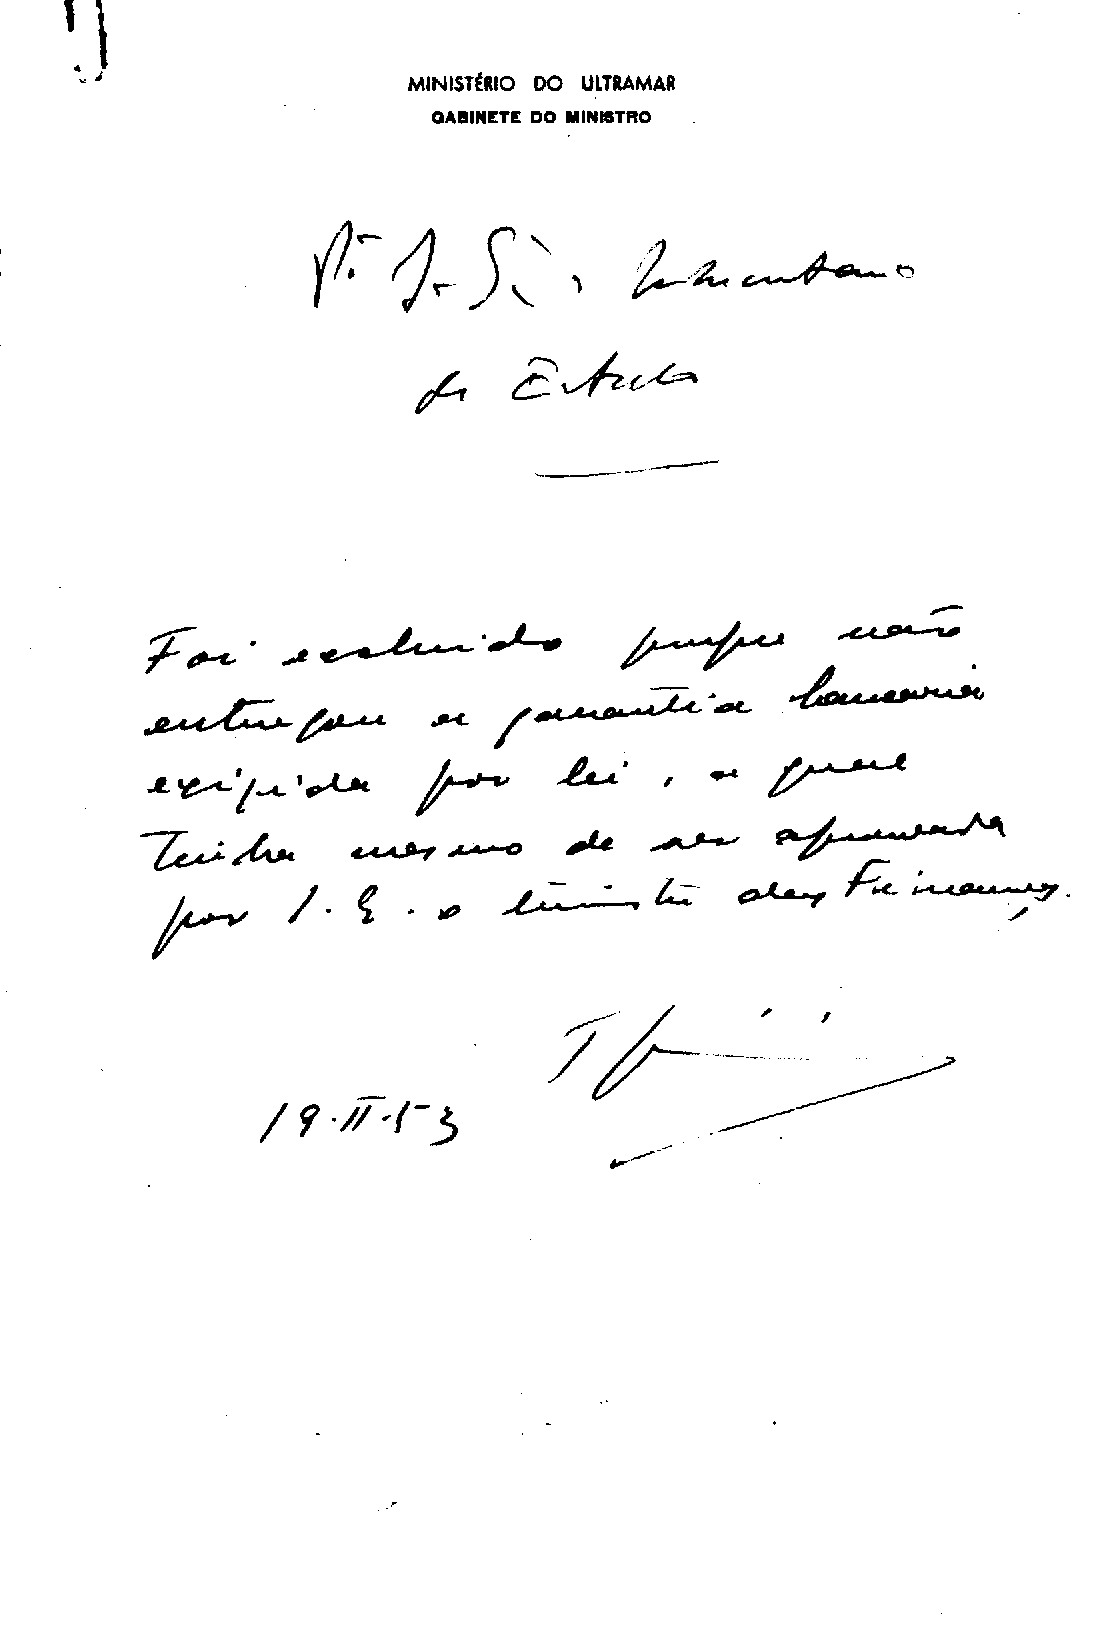 MINISTÉRIO DO ULTRAMAR
GABINETE DO MINISTRO
de Estado
Foi excluido porque não
entregou a garantia bancaria
exigida por lei, a qual
tinha mesmo de ser aprovada
por S. E. o ministro das Finanças.
19.II.53